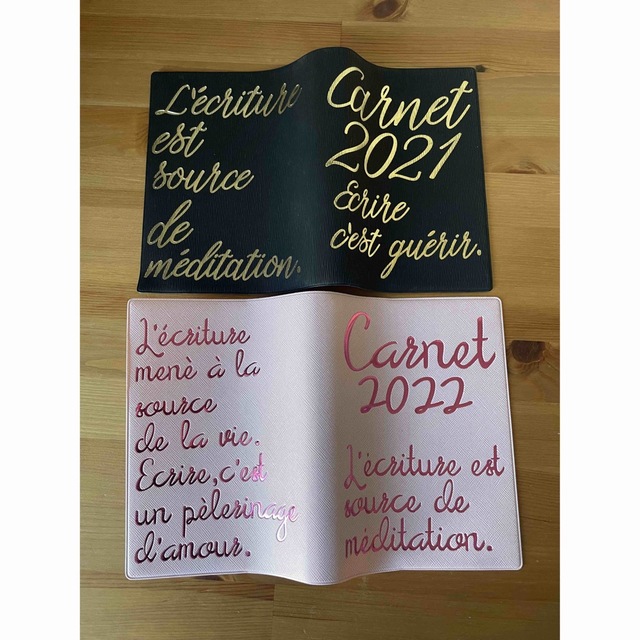 L'écriture
est
source
de
méditation.
Carnet
2021
Ecrire
c'est guérir.
L'écriture
menè à la
source
de la vie.
Ecrire, c'est
un pèlerinage
d'amour.
Carnet
2022
L'écriture est
source de
méditation.